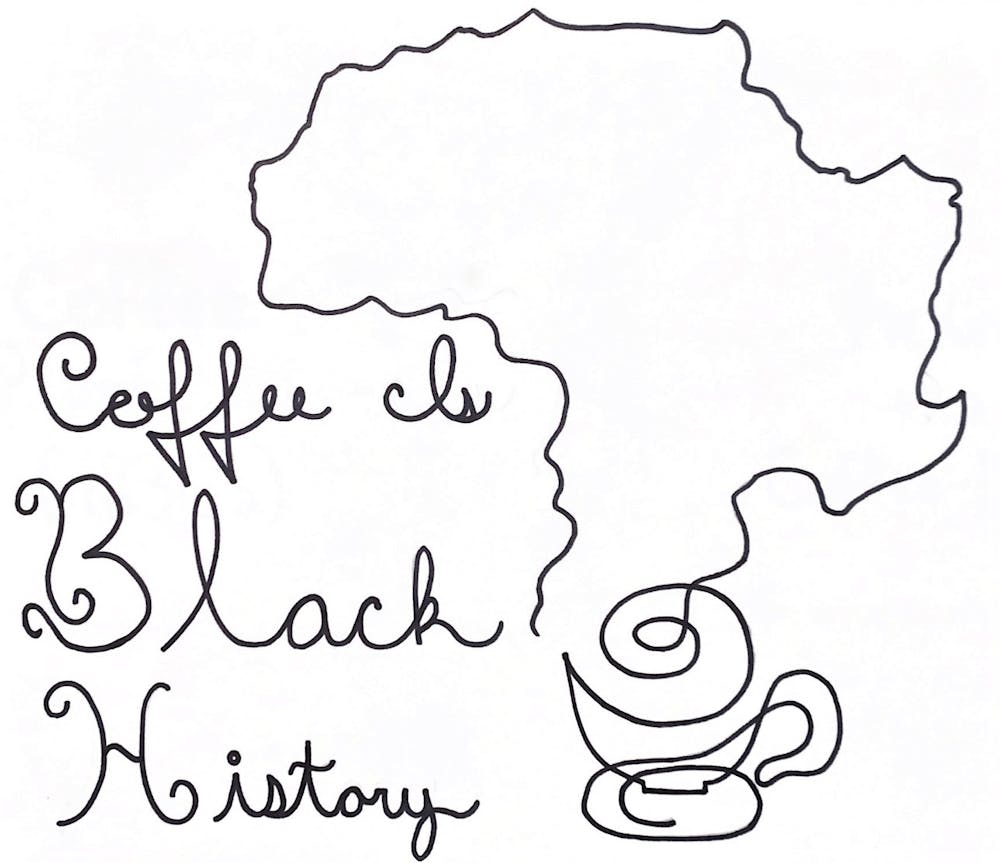 Coffee Is
Black
History